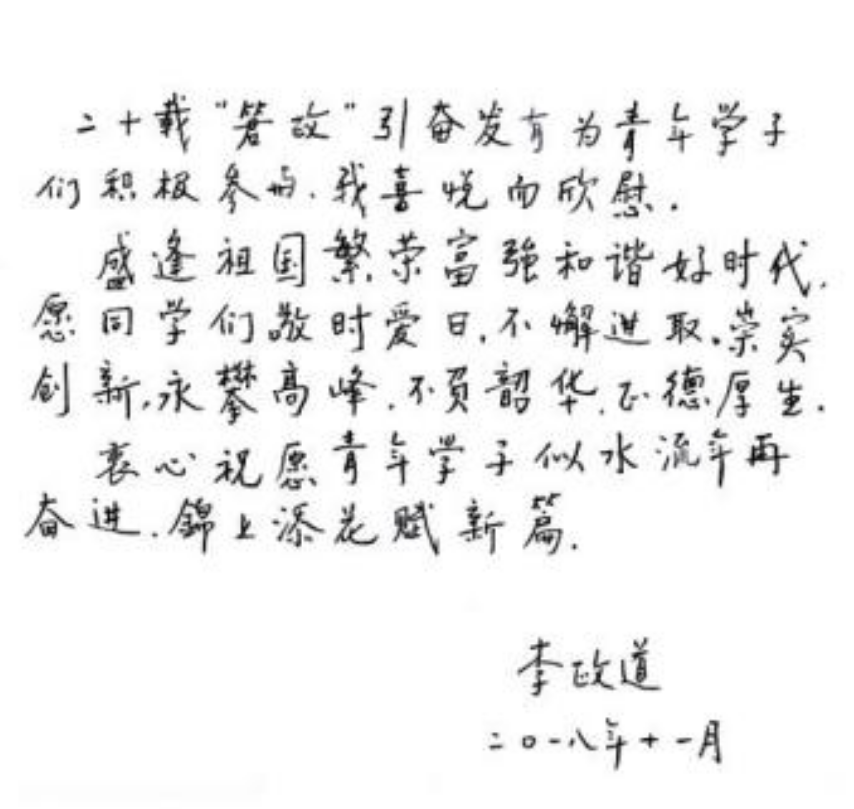 二十载“箬政”引奋发有为青年学子
们积极参与.我喜悦而欣慰.
盛逢祖国繁荣富强和谐好时代.
愿同学们敬时爱日.不懈进取.崇实
创新.永攀高峰.不负韶华.正德厚生.
衷心祝愿青年学子似水流年再
奋进.錦上添花赋新篇.
李政道
二〇一八年十一月